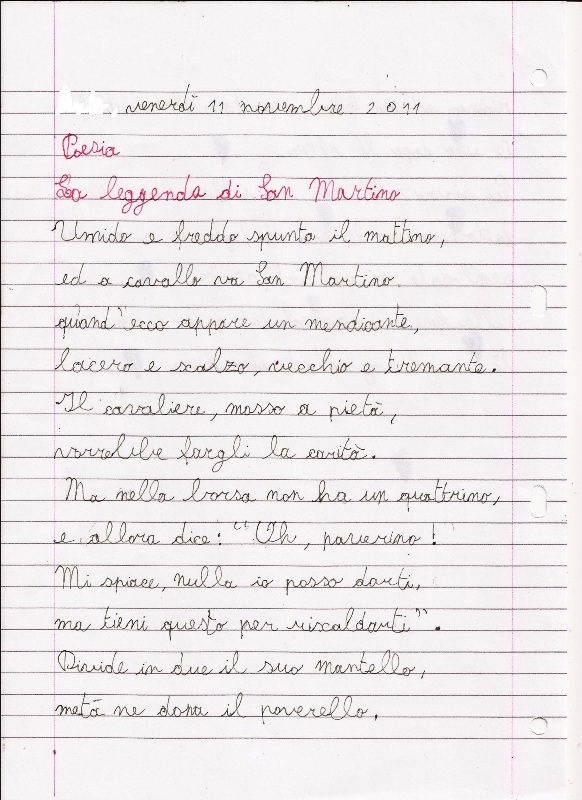 venerdì 11 novembre 2011
Poesia
La leggenda di San Martino
Umido e freddo spunta il mattino,
ed a cavallo va San Martino.
quand'ecco appare un mendicante,
lacero e scalzo, vecchio e tremante.
Il cavaliere, mosso a pietà,
vorrebbe fargli la carità.
Ma nella borsa non ha un quattrino,
e allora dice: "Oh, poverino!
Mi spiace, nulla io posso darti,
ma tieni questo per riscaldarti".
Divide in due il suo mantello,
metà ne dona il poverello.